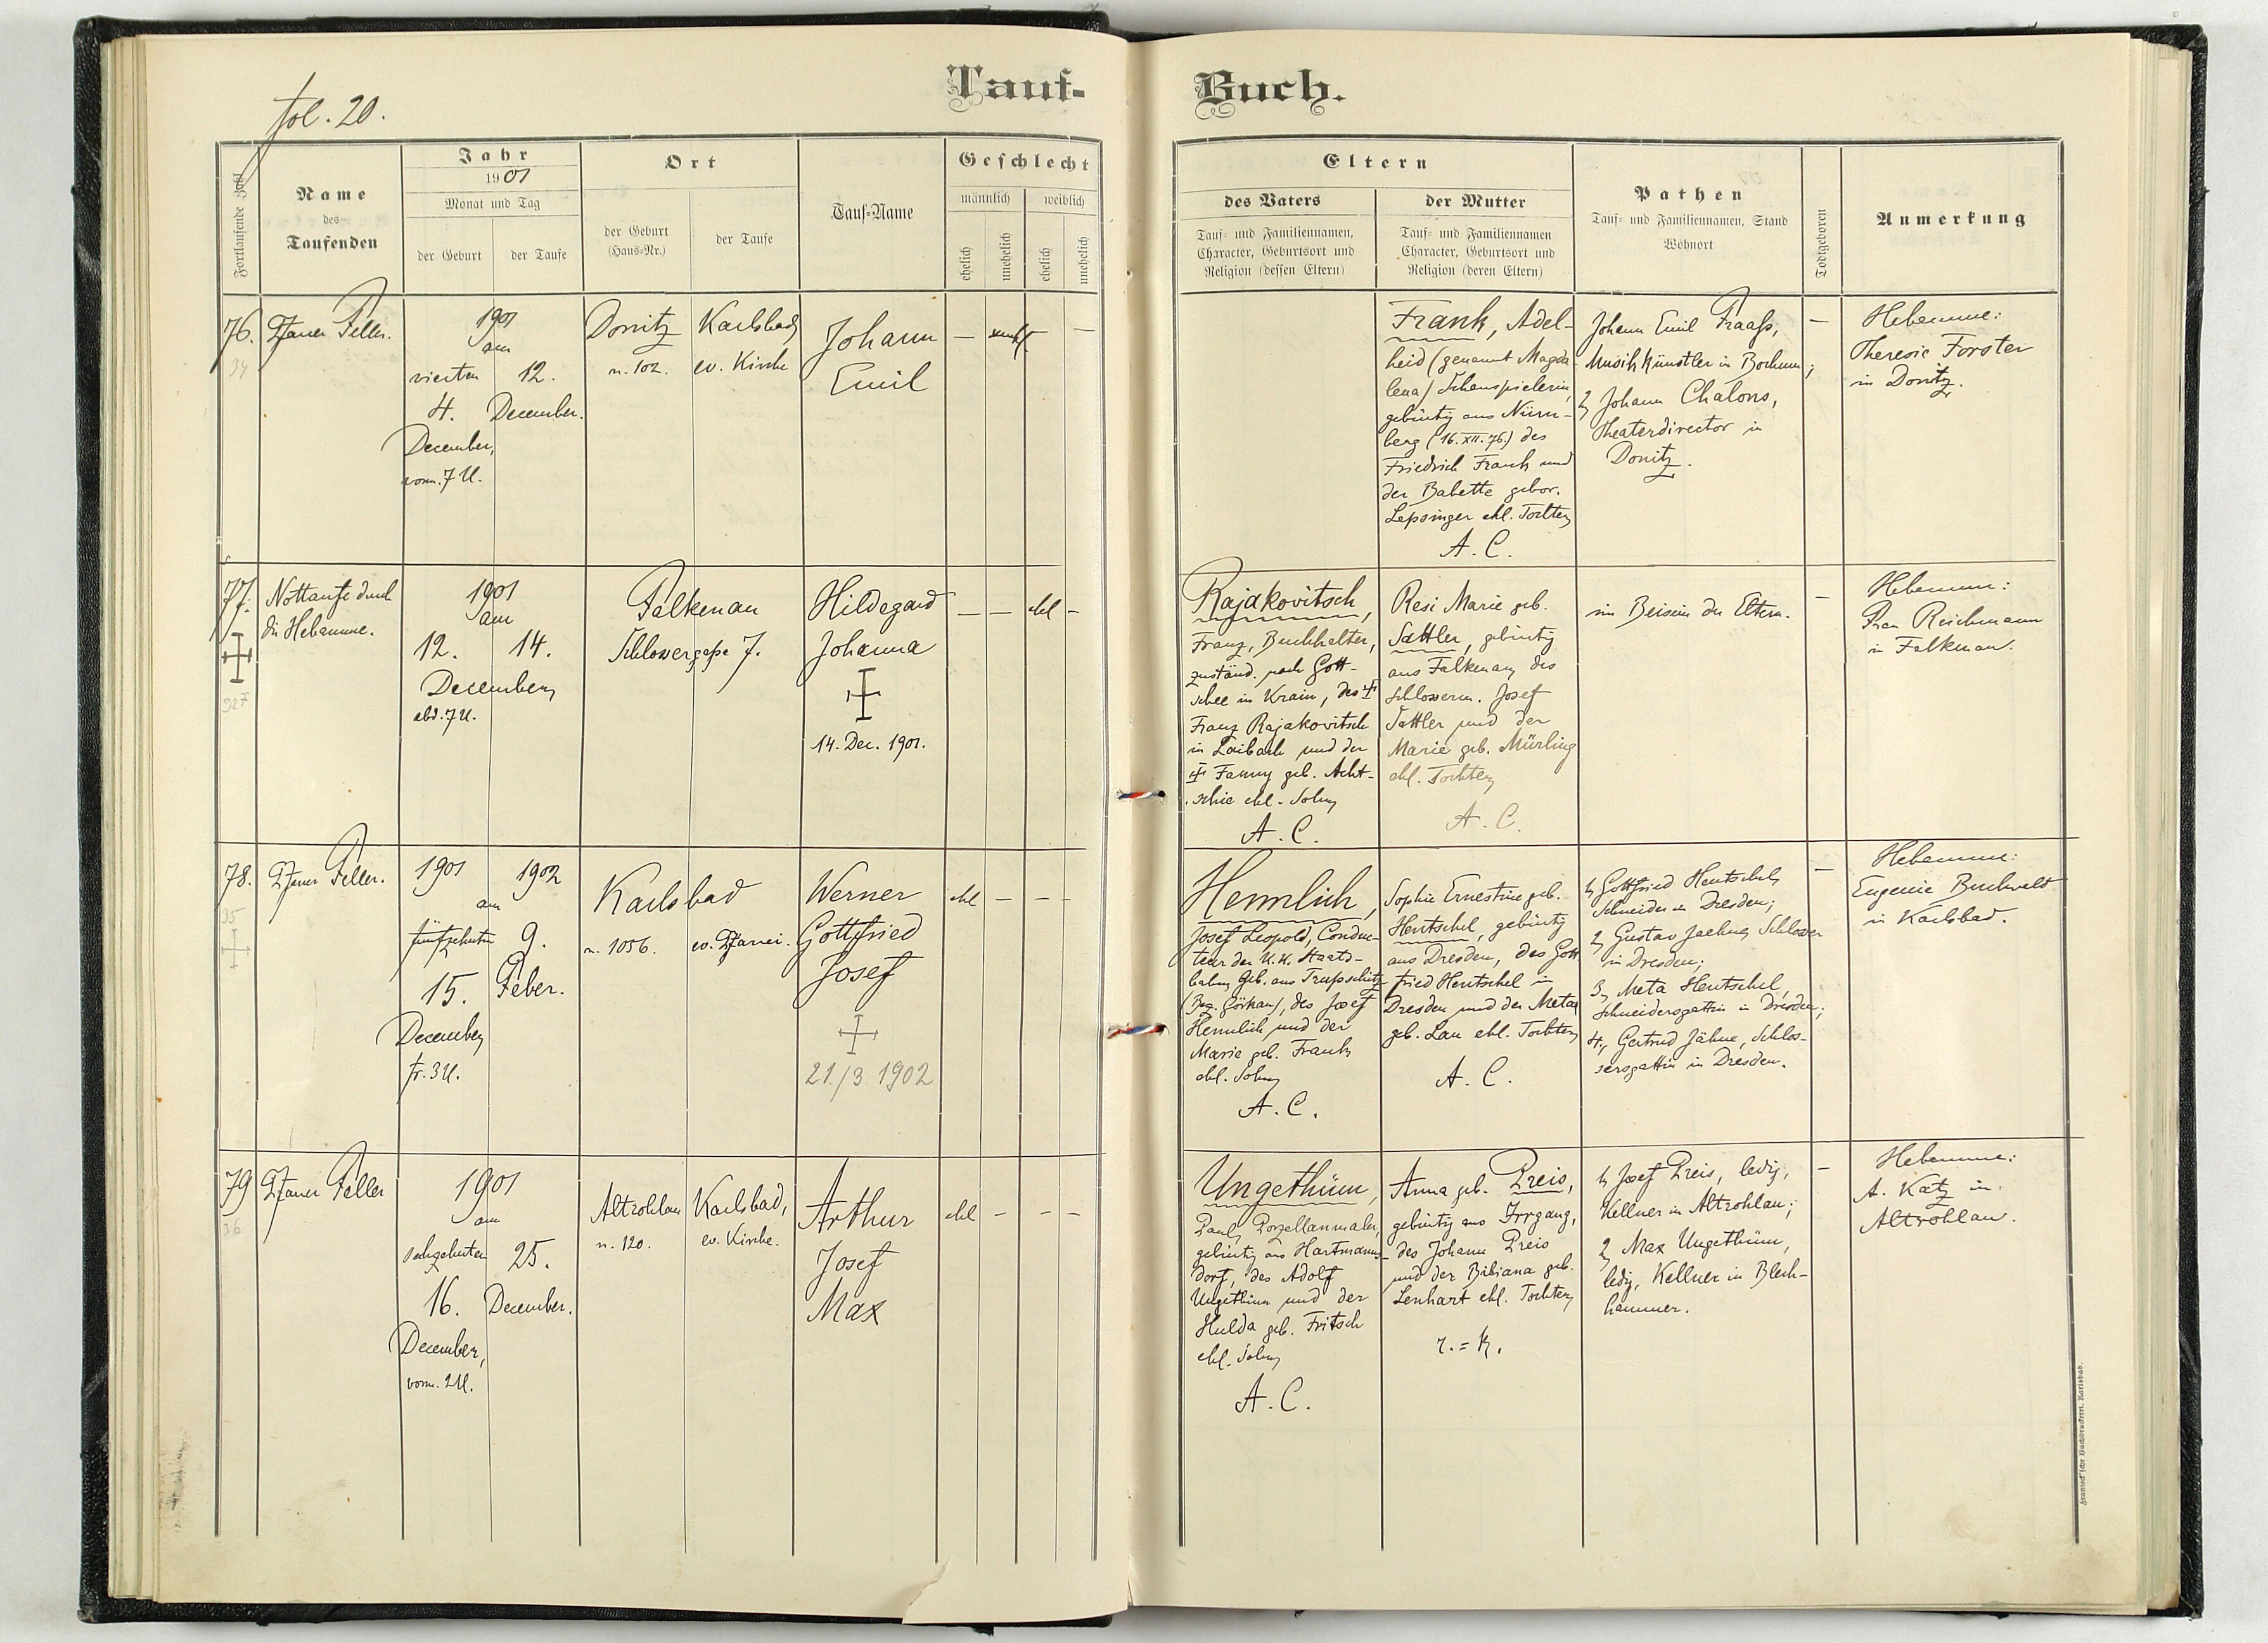 fol. 20.
Tauf-
Buch.
Fortlaufende Zahl
Name
des
Taufenden
Jahr
1901
Monat und Tag
der Geburt
der Taufe
Ort
der Geburt
(Haus-Nr.)
der Taufe
Tauf-Name
Geschlecht
männlich
weiblich
ehelich
unehelich
ehelich
unehelich
Eltern
des Vaters
Tauf- und Familiennamen,
Character, Geburtsort und
Religion (dessen Eltern)
der Mutter
Tauf- und Familiennamen
Character, Geburtsort und
Religion (deren Eltern)
Pathen
Tauf- und Familiennamen, Stand
Wohnort
Todtgeboren
Anmerkung
76.
34
Pfarrer Feller.
1901
am
vierten
4.
December,
vorm. 7 U.
12.
December.
Donitz
n. 102.
Karlsbad
ev. Kirche
Johann
Emil
—
unehl.
—
Frank, Adel-
heid (genannt Magda-
lena) Schauspielerin,
gebürtig aus Nürn-
berg (16. XII. 76.) des
Friedrich Frank und
der Babette gebor.
Lepsinger ehl. Tochter
A. C.
Johann Emil Fraaß,
Musikkünstler in Bochum;
2, Johann Chalons,
Theaterdirector in
Donitz.
—
Hebamme:
Theresie Forster
in Donitz.
77.
927
Nottaufe durch
die Hebamme.
1901
am
12.
14.
December
abd. 7 U.
Falkenau
Schlossergasse 7.
Hildegard
Johanna
14. Dec. 1901.
—
—
ehl
-
Rajakovitsch,
Franz, Buchhalter,
zuständ. nach Gott-
schee in Krain, des
Franz Rajakovitsch
in Laibach und der
Fanny geb. Acht-
schie ehl. Sohn
A. C.
Resi Marie geb.
Sattler, gebürtig
aus Falkenau, des
Schlosserm. Josef
Sattler und der
Marie geb. Mürling
ehl. Tochter
A. C.
im Beisein der Eltern.
—
Hebamme:
Frau Reichmann
in Falkenau.
78.
35
Pfarrer Feller.
1901
1902
am
fünfzehnten
15.
December
fr. 3 U.
9.
Feber.
Karlsbad
n. 1056.
ev. Pfarrei.
Werner
Gottfried
Josef
21./3 1902
ehl
-
-
-
Hennlich,
Josef Leopold, Conduc-
teur der K.K. Staats-
bahn, geb. aus Trupschitz
(Bez. Görkau), des Josef
Hennlich und der
Marie geb. Frank
ehl. Sohn
A. C.
Sophie Ernestine geb.
Hentschel, gebürtig
aus Dresden, des Gott
fried Hentschel in
Dresden und der Meta
geb. Lau ehl. Tochter
A. C.
1, Gottfried Hentschel,
Schneider in Dresden;
2, Gustav Jaehne, Schlosser
in Dresden;
3, Meta Hentschel,
Schneidersgattin in Dresden;
4, Gertrud Jähne, Schlos-
sersgattin in Dresden.
—
Hebamme:
Eugenie Buchwald
in Karlsbad.
79
36
Pfarrer Feller
1901
am
sechzehnten
16.
December,
vorm. 2 U.
25.
December.
Altrohlau
n. 120.
Karlsbad,
ev. Kirche.
Arthur
Josef
Max
ehl
-
-
-
Ungethüm,
Paul, Porzellanmaler,
gebürtig aus Hartmanns-
dorf, des Adolf
Ungethüm und der
Hulda geb. Fritsch
ehl. Sohn
A. C.
Anna geb. Preis,
gebürtig aus Irrgang,
des Johann Preis
und der Bibiana geb.
Lenhart ehl. Tochter
r. = k.
1, Josef Preis, ledig,
Kellner in Altrohlau;
2, Max Ungethüm,
ledig, Kellner in Blech-
hammer.
—
Hebamme:
A. Katz in
Altrohlau.